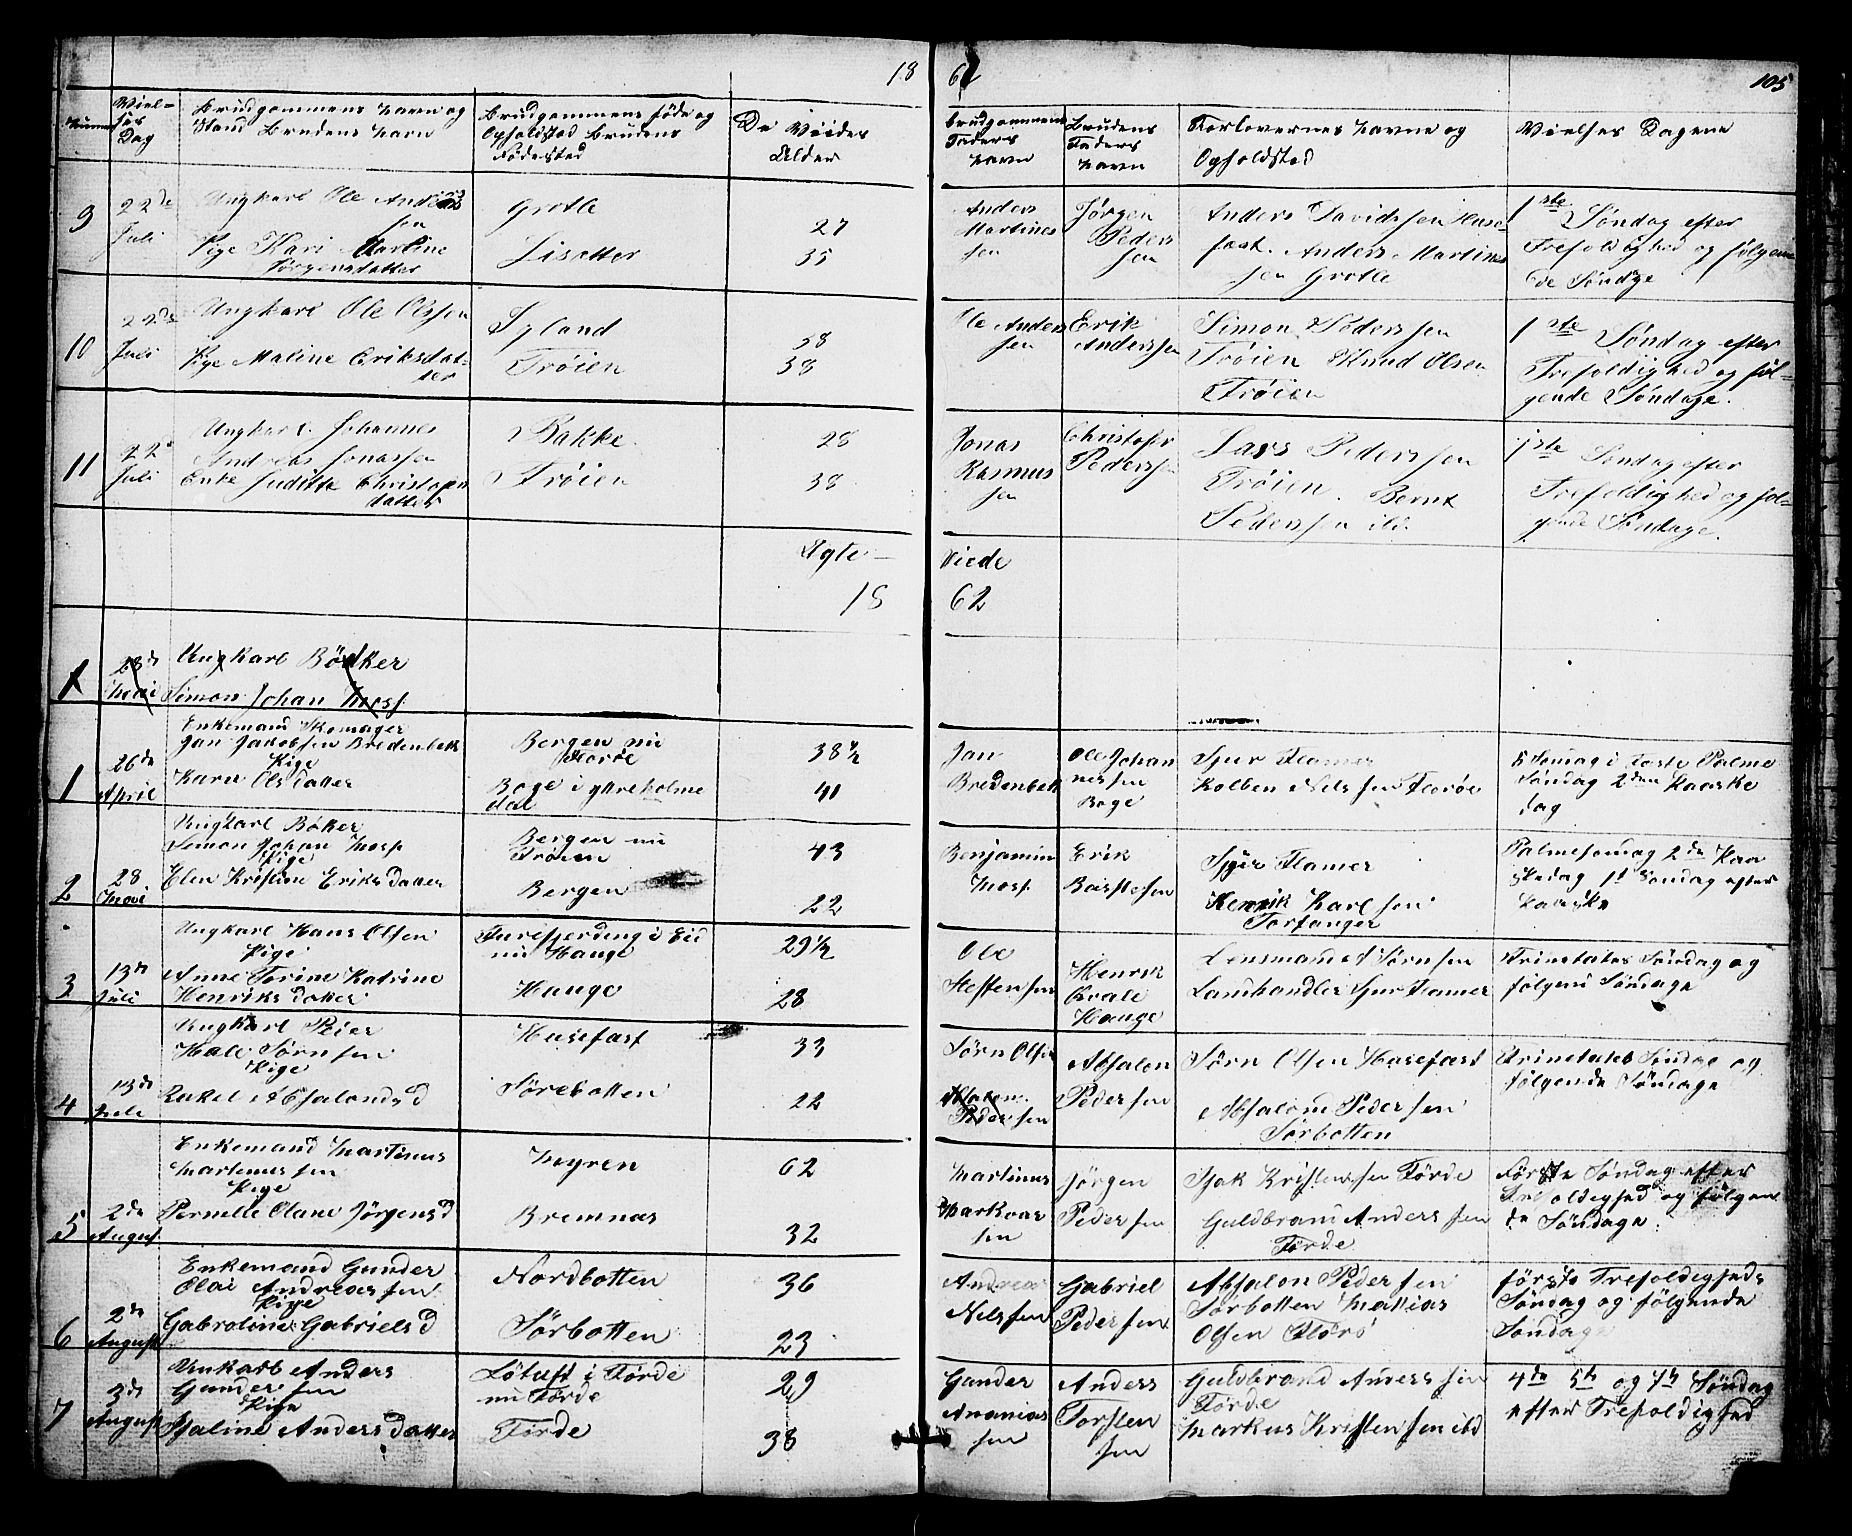 18 61 105
Numer
Viel-
ses
Dag
Brudgommens Navn og
Stand Brudens Navn
Brudgommens Føde og
Opholdsted Brudens
Fødested
De Viedes
Alder
Brudgommens
Faders
Navn
Brudens
Faders
Navn
Forlovernes Navne og
Opholdsted
Vielses Dagene
9
22de
Juli
Ungkarl Ole Anders
sen
Pige Kari Martine
Jørgensdatter
Grotle
Lisetter
27
35
Anders
Martines
sen
Jørgen
Peders
sen
Anders Davidssen Huse
fæst. Anders Martines
sen Grotle
1ste Søndag efter
Trefoldighed og følgen
de Søndge
10
22de
Juli
Ungkarl Ole Olssen
Pige Maline Eriksdat-
ter
Tyland
Trøien
58
38
Ole Anders
sen
Erik
Anderssen
Simon Pederssen
Trøien Knud Olsen
Trøien
1ste Søndag efter
Trefoldighed og føl-
gende Søndage.
11
22de
Juli
Ungkarl Johannes
Andreas Jonassen
Enke Juditte Christophs
datter
Bakke
Trøien
28
38
Jonas
Rasmus
sen
Christofer
Pederssen
Lars Pederssen
Trøien. Bernt
Pederssen ibd.
1ste Søndag efter
Trefoldighed og føl-
gende Søndage.
Ægte- Viede
18 62
1
28de
Mai
Ungkarl Bödker
Simon Johan Mosp
1
26de
April
Enkemand Skomager
Jan Jakobsen Bredenbek
Pige
Karen Olsdatter
Bergen nu
Florøe
Boge i ytreholme
dal
38½
41
Jan
Bredenbek
Ole Johan
nessen
Boge
Sjur Flamer
Kolben Nilssen Florøe
5 Sønnag i Faste Palme
Søndag 2den Paaske
dag
2
28
Mai
Ungkarl Böker
Simon Johan Mosp
Pige
Elen Kristine Eriksdatter
Bergen nu
Trøien
Bergen
43
22
Benjamin
Mosp
Erik
Baistesen
Sjur Flamer
Henrik Karlsen
Torfanger
Palmesondag 2de Paa
skedag 1st Søndag efter
Paaske
3
13de
Juli
Ungkarl Hans Olsen
Pige
Anne Torine Katrine
Henriksdatter
i Eid
nu Hauge
Hauge
29½
28
Ole
Steffensen
Henrik
Kvale
Hauge
Lensmand Sørnsen
Landhandler Sjur Flamer
Trinetates Søndag og
følgend Søndage
4
13de
Juli
Ungkarl Peier
Hale Sørnsen
Pige
Rakel Absalonsd
Husefast
Sörebotten
33
22
Sørn Olsen
Absalon
Pedersen
Absalon
Pedersen
Sörn Olsen Husefast
Absalond Pedersen
Sørbotten
Trinetates Søndag og
følgende Søndage
5
2de
August
Enkemand Martinus
Martinussen
Pige
Pernelle Olane Jörgensd
Myren
Bremnes
62
32
Martinus
Markvar
sen
Jörgen
Pedersen
Isak Kristensen Förde
Guldbrand Anderssen
Förde
Første Søndag efter
Trefoldeghed og følgen
de Søndage.
6
2de
August
Enkemand Gunder
Olai Andreassen
Pige
Gabroline Gabrielsd
Nordbotten
Sörbotten
36
23
Andreas
Nilssen
Gabriel
Pedersen
Absalon Pedersen
Sørbotten Mattias
Olsen Florö
förste Trefoldigheds
Søndag og følgende
Søndage
7
3de
August
Unkarl Anders
Gundersen
Pige
Maline Andersdatter
Løtuft i Førde
nu Førde
Förde
29
38
Gunder
Ananias
sen
Anders
Torsten
sen
Guldbrand Anderssen
Förde
Markus Kristensen ibd
4de 5te og 7de Søndag
efter Trefoldighed